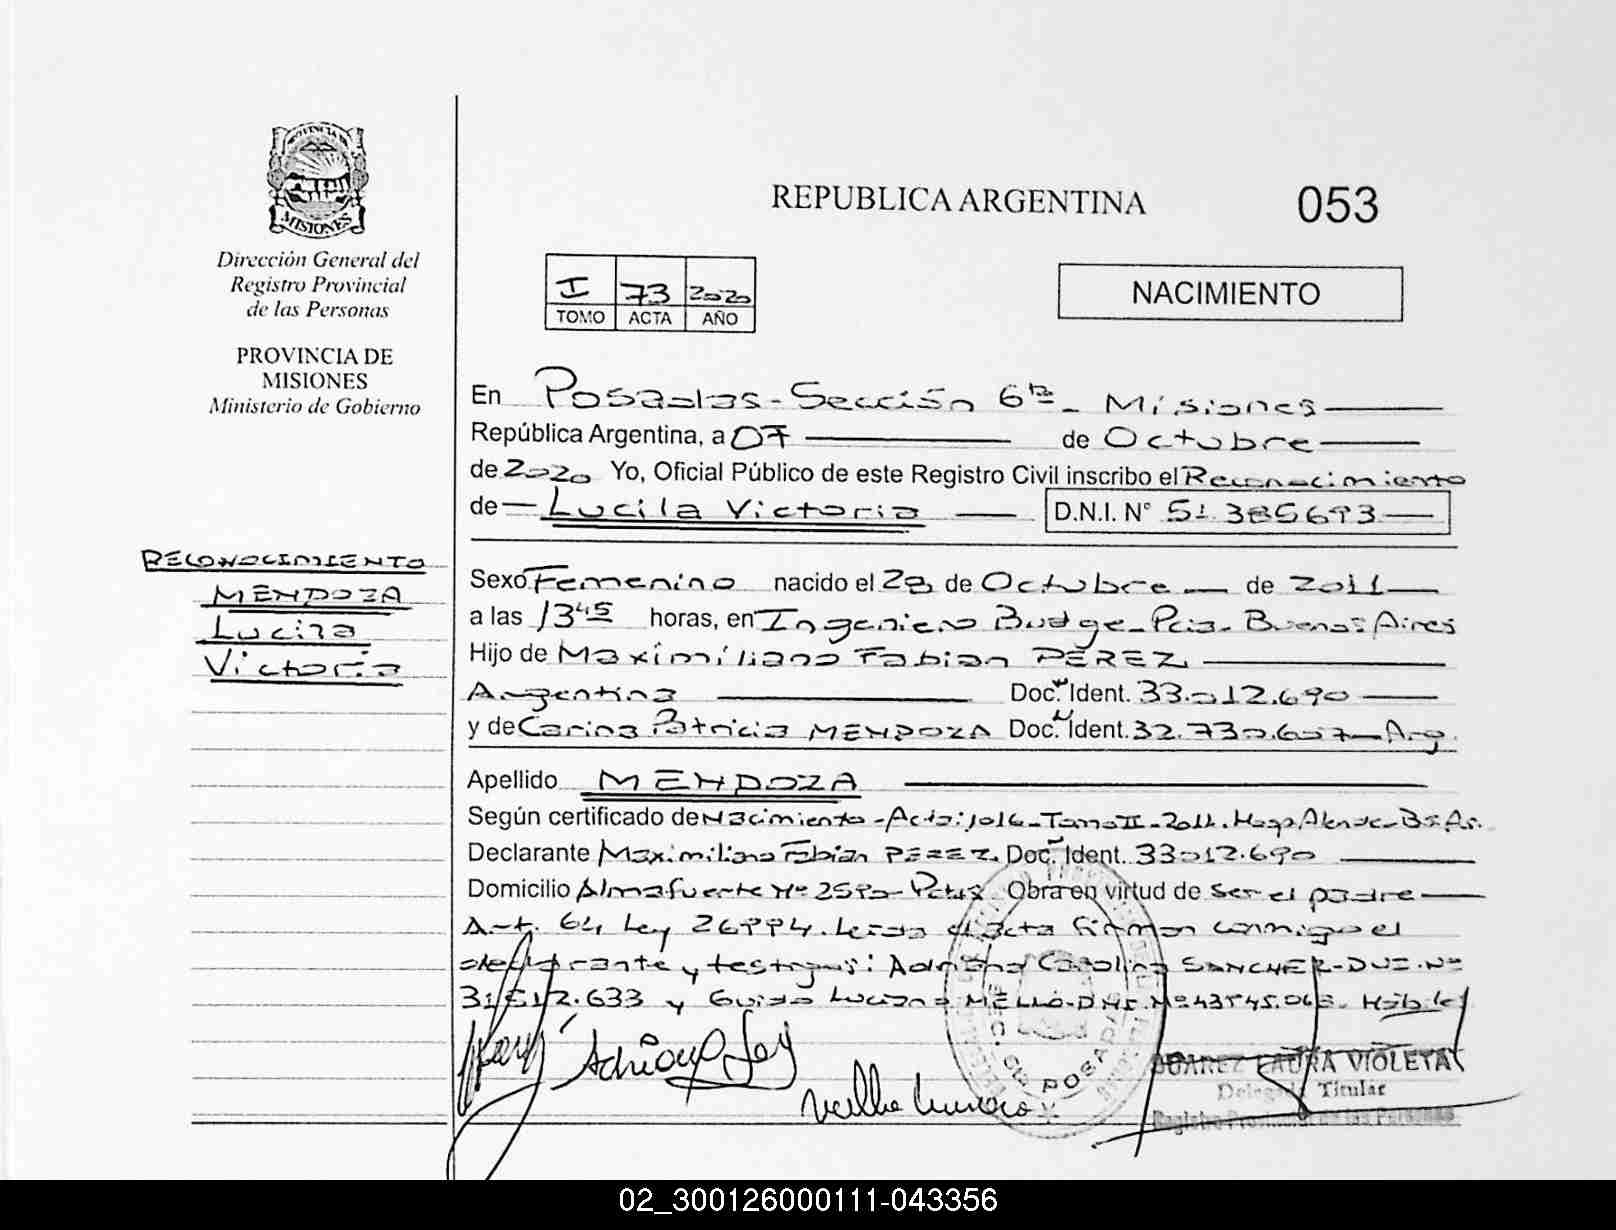 PROVINCIA DE
MISIONES
Dirección General del
Registro Provincial
de las Personas
PROVINCIA DE
MISIONES
Ministerio de Gobierno
RECONOCIMIENTO
MENDOZA
Lucila
Victoria
REPUBLICA ARGENTINA 053
I 73 2020
TOMO ACTA AÑO
NACIMIENTO
En Posadas - Sección 6ta - Misiones
República Argentina, a 07 de Octubre
de 2020 Yo, Oficial Público de este Registro Civil inscribo el Reconocimiento
de Lucila Victoria D.N.I. N° 51.385693
Sexo Femenino nacido el 28 de Octubre de 2011
a las 13 45 horas, en Ingeniero Budge - Pcia - Buenos Aires
Hijo de Maximiliano Fabian PÉREZ
Argentina Doc. Ident. 33.012.690
y de Carina Patricia MENDOZA Doc. Ident. 32.730.607 Arg.
Apellido MENDOZA
Según certificado de Nacimiento - Acta: 1016 - Tomo II - 2011. Hosp. Alende - Bs. As.
Declarante Maximiliano Fabian PEREZ. Doc. Ident. 33012.690
Domicilio Almafuerte Nº 2590 - Pdas Obra en virtud de ser el padre
Art. 64 Ley 26994. Leida el acta firman conmigo el
declarante y testigos: Adriana Carolina SANCHEZ - DNI - Nº
31.512.633 y Guido Luciano MELLO - DNI. Nº 43545.063. Hábiles
JUAREZ LAURA VIOLETA
Delegada Titular
Registro Provincial de las Personas
02_300126000111-043356